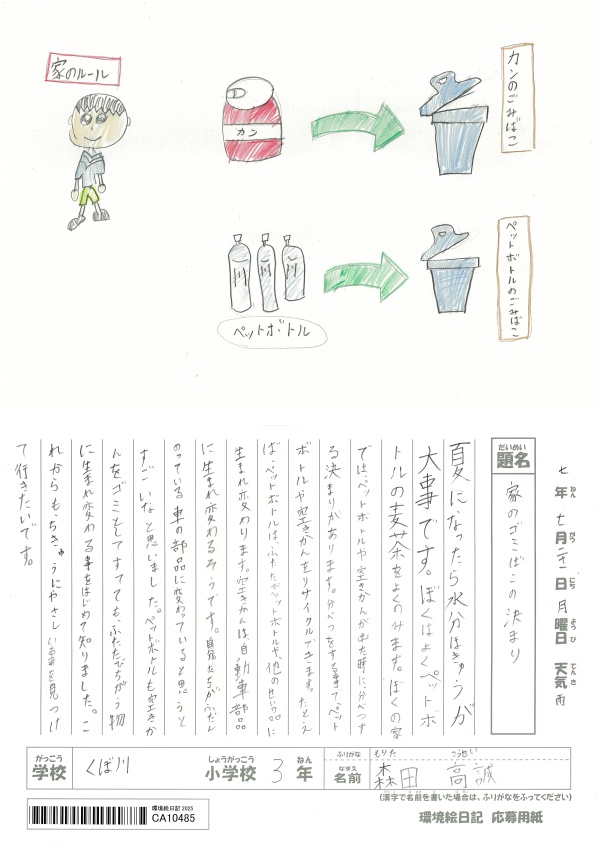 家のルール
カン
カンのごみばこ
ペットボトル
ペットボトルのごみばこ
七年七月二十一日月曜日 天気雨
ねん がつ にち ようび てんき
だいめい
題名 家のゴミばこの決まり
夏になったら水分ほきゅうが
大事です。ぼくはよくペットボ
トルの麦茶をよくのみます。ぼくの家
では、ペットボトルや空きかんが出た時に、分べつす
る決まりがあります。分べつをする事でペット
ボトルや空きかんをリサイクルできます。たとえ
ば、ペットボトルは、ふたたびペットボトルや、他のせい品に
生まれ変わります。空きかんは、自動車部品
に生まれ変わるそうです。自分たちがふだん
のっている車の部品に変わっていると思うと
すごいなと思いました。ペットボトルも空きか
んをゴミとしてすてても、ふたたびちがう物
に生まれ変わる事をはじめて知りました。こ
れからも、ちきゅうにやさしい事を見つけ
て行きたいです。
がっこう しょうがっこう ねん
学校 くぼ川 小学校 3年
ふりがな もりた こうせい
なまえ
名前 森田 高誠
(漢字で名前を書いた場合は、ふりがなをふってください)
環境絵日記 2025
CA10485
環境絵日記 応募用紙